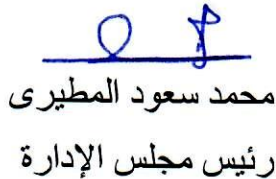 محمد سعود المطيرى
رئيس مجلس الإدارة